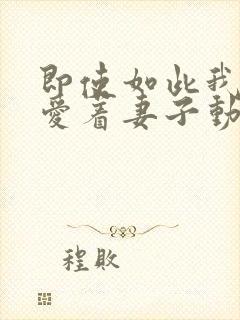 即使如此我
爱着妻子動
程敗